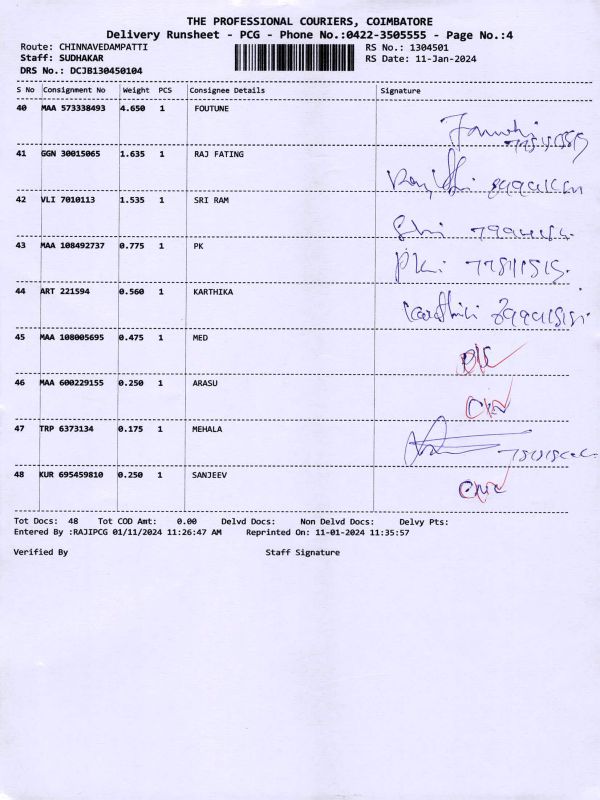 THE PROFESSIONAL COURIERS, COIMBATORE
Delivery Runsheet - PCG - Phone No.:0422-3505555 - Page No.:4
Route: CHINNAVEDAMPATTI RS No.: 1304501
Staff: SUDHAKAR RS Date: 11-Jan-2024
DRS No.: DCJB130450104
S No Consignment No Weight PCS Consignee Details Signature
40 MAA 573338493 4.650 1 FOUTUNE
41 GGN 30015065 1.635 1 RAJ FATING
42 VLI 7010113 1.535 1 SRI RAM
43 MAA 108492737 0.775 1 PK
44 ART 221594 0.560 1 KARTHIKA
45 MAA 108005695 0.475 1 MED
46 MAA 600229155 0.250 1 ARASU
47 TRP 6373134 0.175 1 MEHALA
48 KUR 695459810 0.250 1 SANJEEV
Tot Docs: 48 Tot COD Amt: 0.00 Delvd Docs: Non Delvd Docs: Delvy Pts:
Entered By :RAJIPCG 01/11/2024 11:26:47 AM Reprinted On: 11-01-2024 11:35:57
Verified By Staff Signature